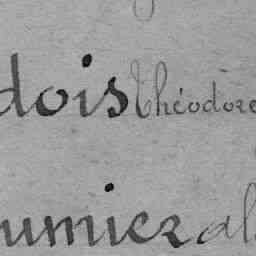 dois Théodore
umier al